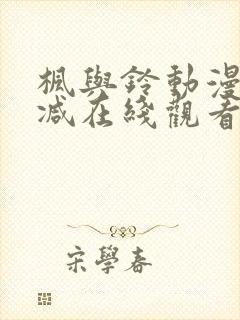 楓與鈴動漫
减在綫觀看
宋學春